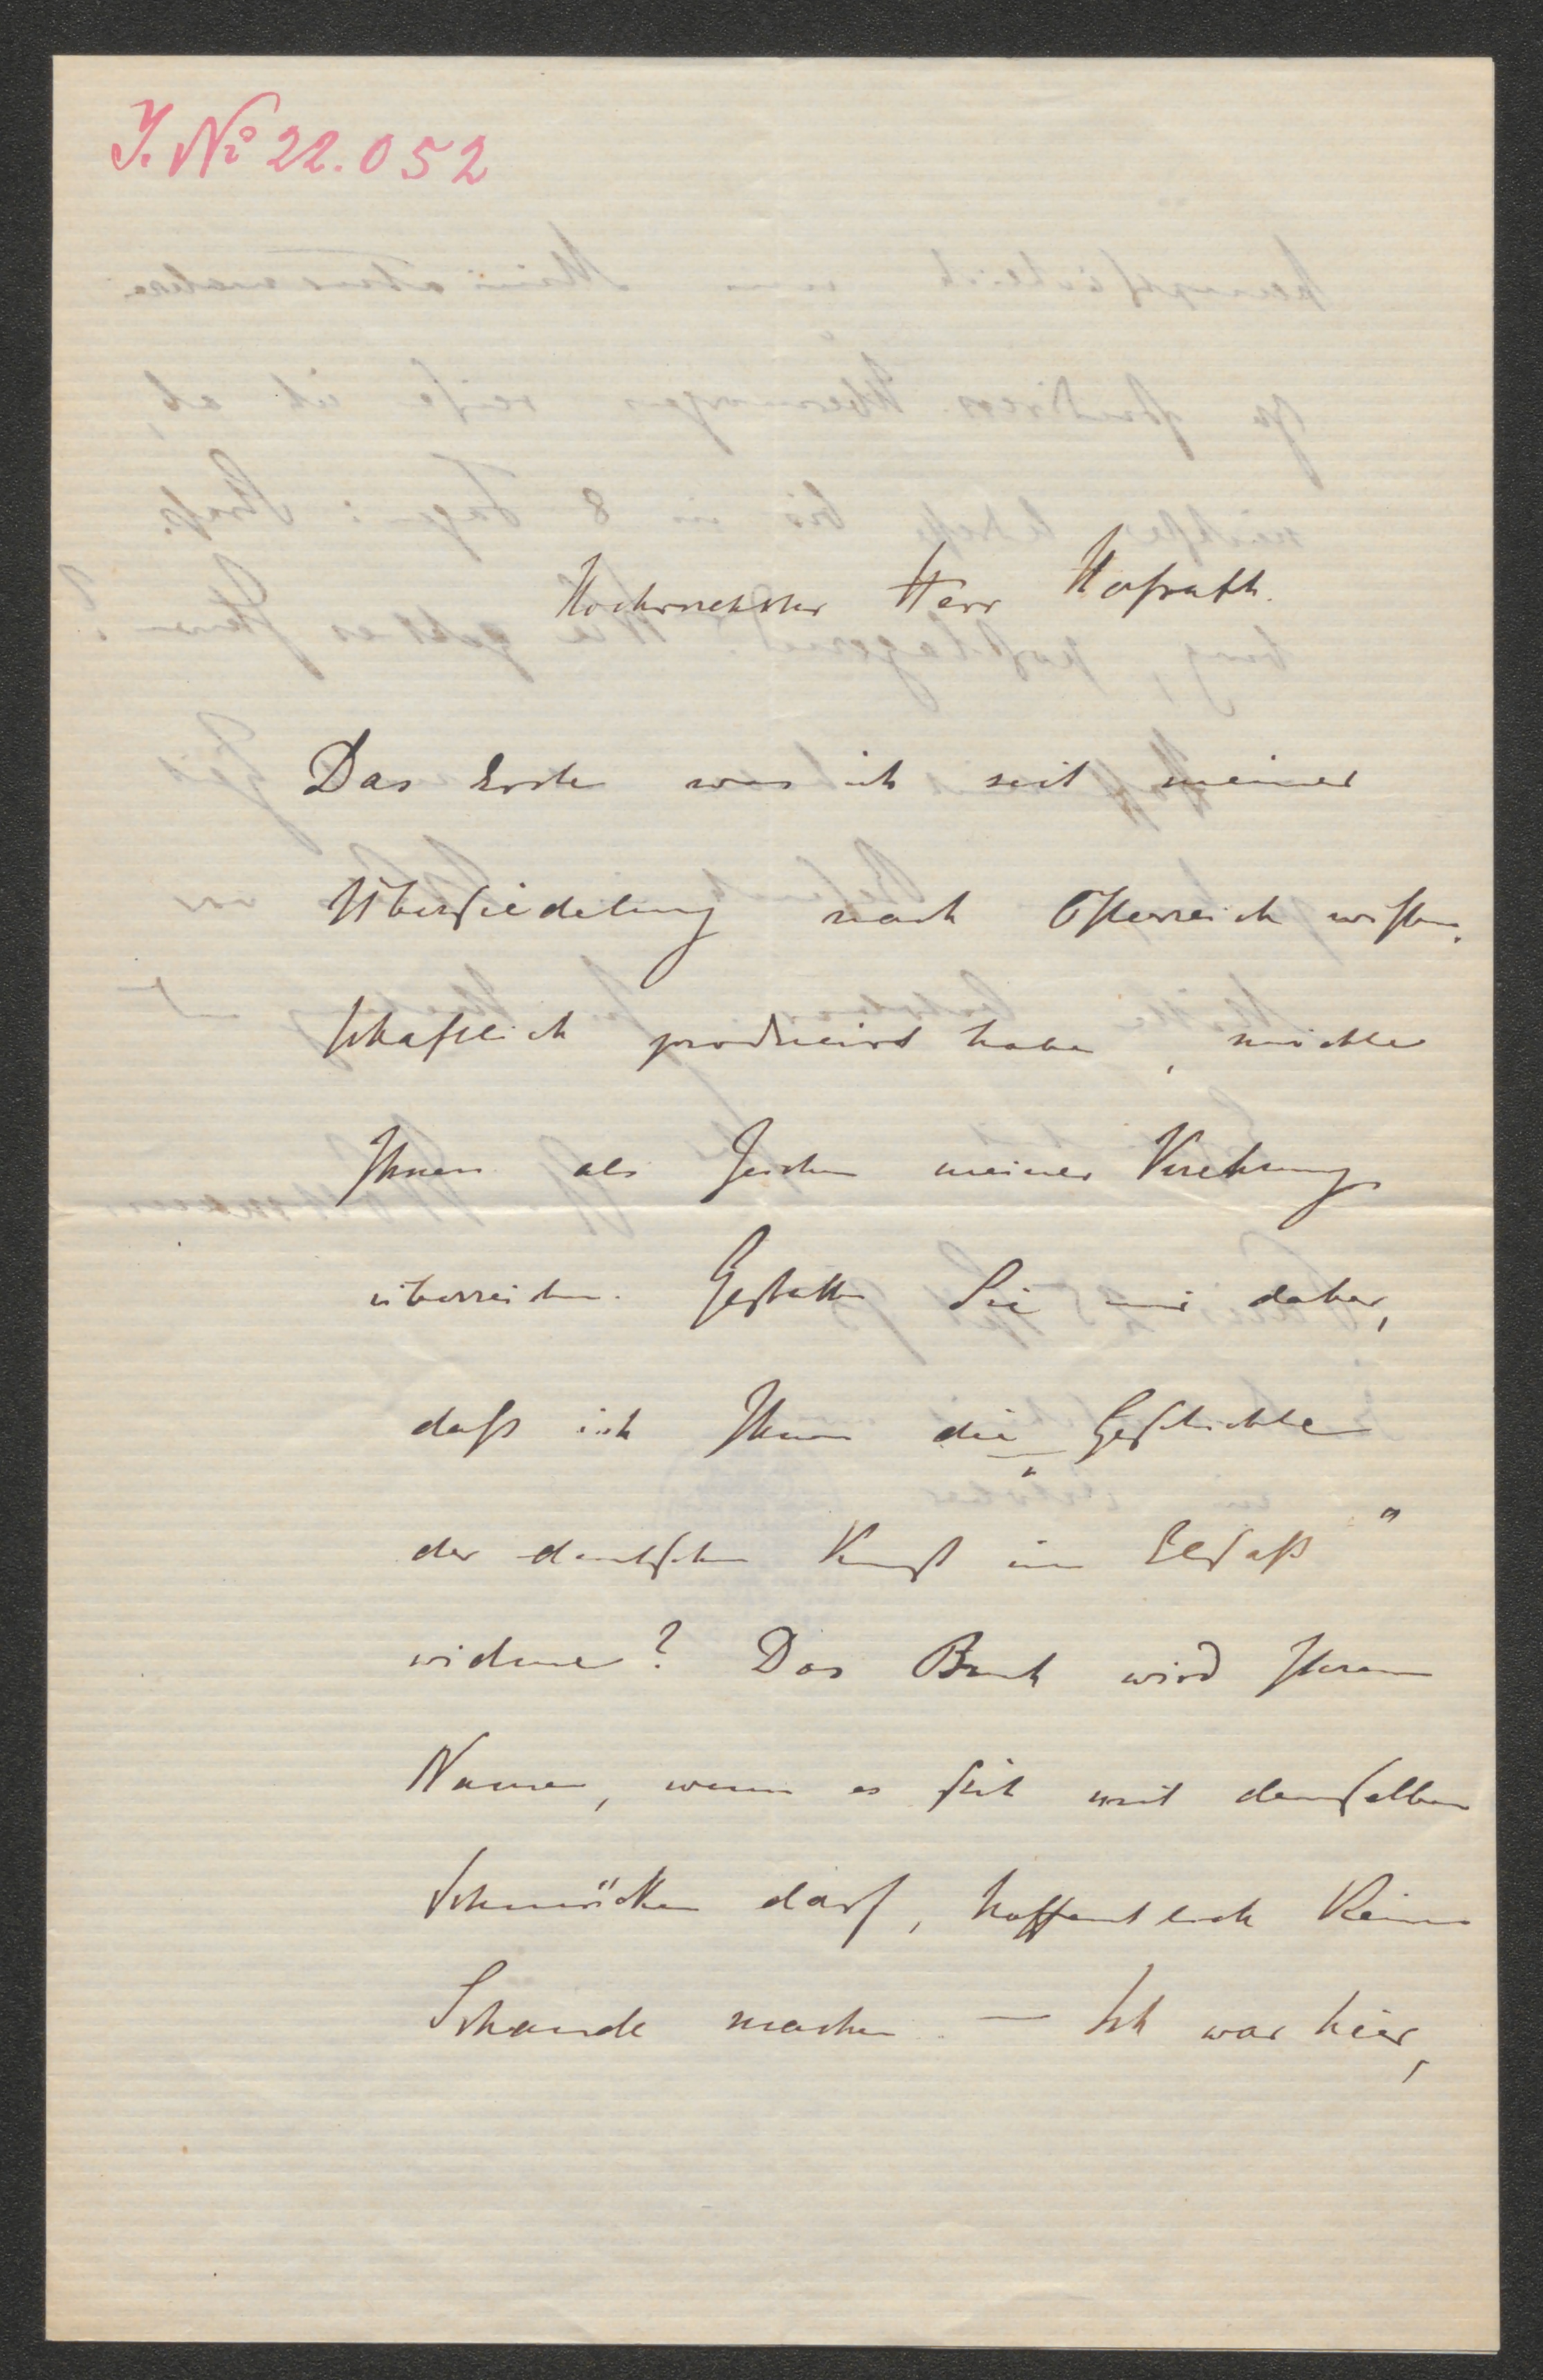 J. No 22.052
Hochverehrter Herr Hofrath.
Das Erste was ich seit meiner
Übersiedelung nach Österreich wissen-
schaftlich producirt habe, möchte
Ihnen als Zeichen meiner Verehrung
überreichen. Gestatten Sie mir daher,
daß ich Ihnen die „Geschichte
der deutschen Kunst im Elsaß"
widme? Das Buch wird Ihrem
Namen, wenn es sich mit demselben
schmücken darf, hoffentlich keine
Schande machen. — Ich war hier,